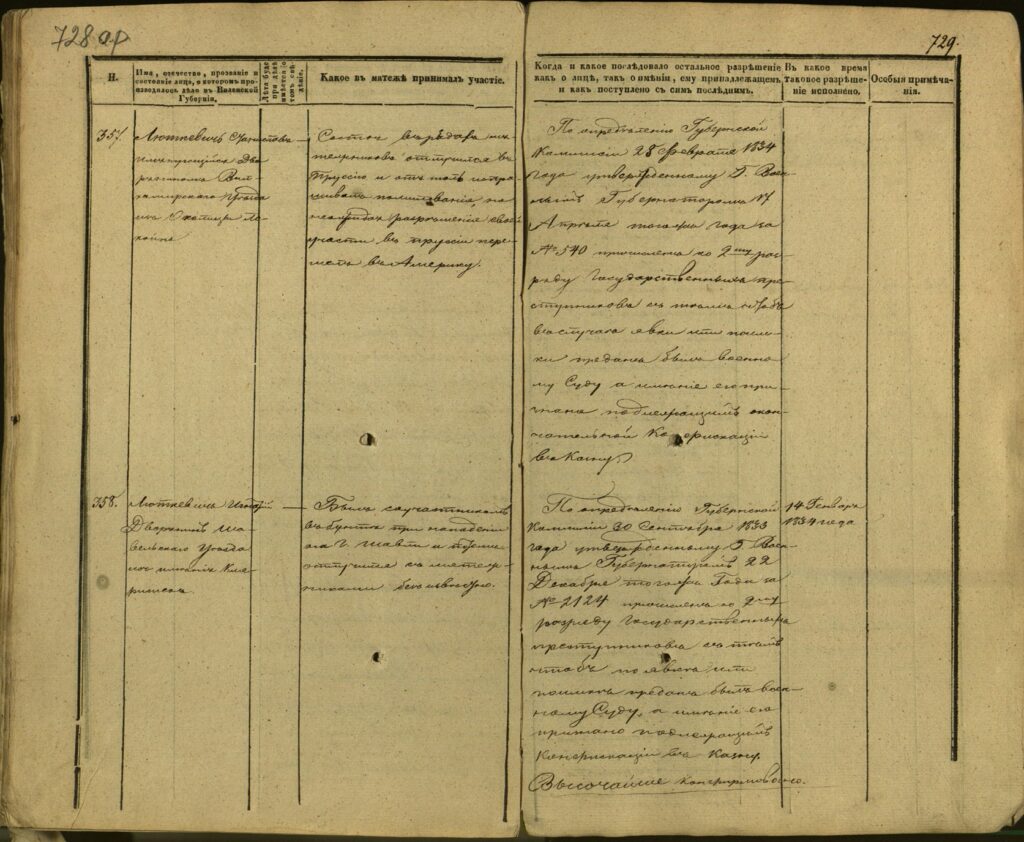 728 ар
729.
Н.
Имя, отчество, прозваніе и
состояніе лица, о которомъ про-
изводилось дѣло въ Виленской
Губерніи.
Какое въ матежѣ принималъ участіе.
Когда и какое послѣдовало остальное разрѣшеніе
какъ о лицѣ, такъ о имѣніи, ему принадлежащемъ
и как поступлено съ симъ послѣднимъ.
Въ какое время
таковое разрѣше-
ніе исполнено.
Особыя примѣча-
нія.
357.
Люткевичъ Станиславъ
Дво-
ряниномъ Вил-
комирскаго Уѣзда
Состоя въ рядахъ мя-
тежниковъ отлучился въ
Пруссію и оттолѣ испра-
шивалъ помилованія, но
разрѣшенія своей
участи въ Пруссіи пере-
шелъ въ Америку.
По опредѣленію Губернской
Коммисіи 28 Февраля 1834
года утвержденному Г. Воен-
нымъ Губернаторомъ 17
Апрѣля того же года за
№ 540 причисленъ ко 2му раз-
ряду Государственныхъ пре-
ступниковъ съ тѣмъ чтобъ
въ случаѣ явки или поим-
ки преданъ былъ военно-
му Суду а имѣніе его при-
знано подлежащимъ окон-
чательной Конфискаціи
въ Казну.
358.
Люткевичъ Игнатій
Дворянинъ Ша-
вельскаго Уѣзда
изъ имѣнія
Былъ соучастникомъ
въ бунтѣ при нападеніи
на г. Шавли и потомъ
отлучился съ мятеж-
никами безъизвѣстно.
По опредѣленію Губернской
Коммисіи 30 Сентября 1833
года утвержденному Г. Воен-
нымъ Губернаторомъ 22
Декабря того же Года за
№ 2124 причисленъ ко 2му
разряду Государственныхъ
преступниковъ съ тѣмъ
чтобъ по явкѣ или
поимкѣ преданъ былъ воен-
ному Суду, а имѣніе его
признано подлежащимъ
Конфискаціи въ Казну.
Высочайше конфирмовано.
14 Генваря
1834 года